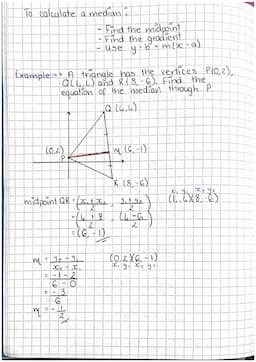 To calculate a median:
- Find the midpoint
- Find the gradient
- Use y - b = m(x - a)
Example => A triangle has the vertices P(0,2),
Q(4,4) and R(8,-6). Find the
equation of the median through P
Q (4,4)
(0,2)
P
M (6,-1)
R (8,-6)
midpoint QR = (x₁ + x₂ / 2 , y₁ + y₂ / 2)
x₁ y₁ x₂ y₂
(4,4)(8,-6)
= (4 + 8 / 2 , 4 - 6 / 2)
= (6, -1)
m = y₂ - y₁ / x₂ - x₁
(0,2)(6,-1)
x₁ y₁ x₂ y₂
= -1 - 2 / 6 - 0
= -3 / 6
m = -1 / 2